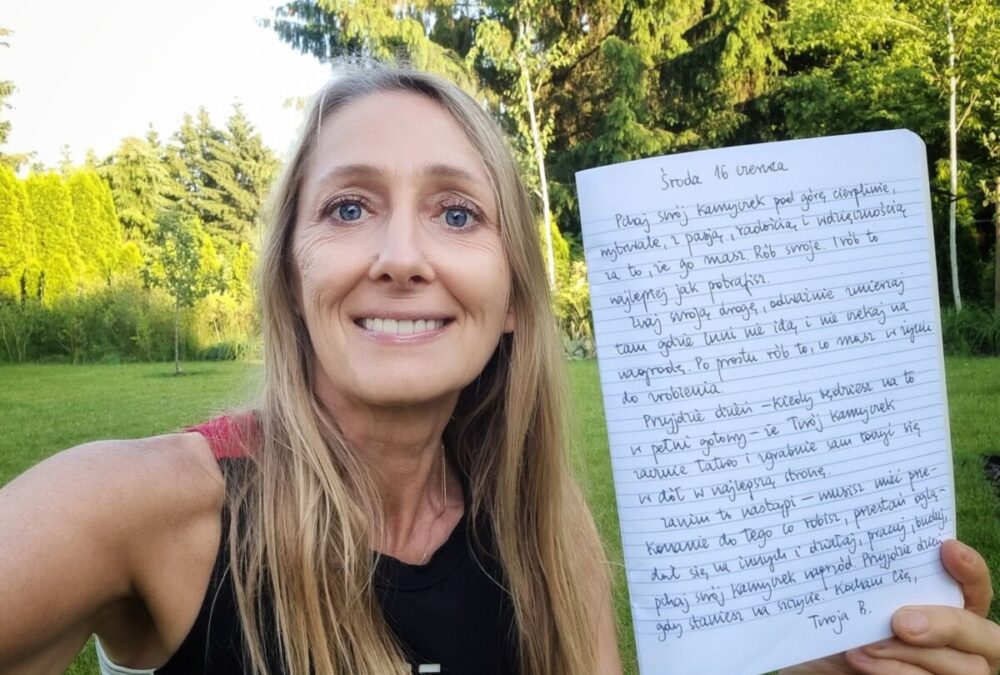 Środa 16 czerwca
Pchaj swój kamyczek pod górę cierpliwie,
wytrwale, z pasją, radością i wdzięcznością
za to, że go masz. Rób swoje. I rób to
najlepiej jak potrafisz.
swoją drogą, odważnie zmierzaj
tam gdzie inni nie idą i nie czekaj na
nagrodę. Po prostu rób to, co masz w życiu
do zrobienia.
Przyjdzie dzień – kiedy będziesz na to
w pełni gotowy – że Twój kamyczek
zacznie łatwo i zgrabnie sam toczyć się
w dół w najlepszą stronę.
Zanim to nastąpi – musisz mieć prze-
konanie do tego co robisz, przestań oglą-
dać się na innych i działaj, pracuj, buduj,
pchaj swój kamyczek naprzód. Przyjdzie dzień
gdy staniesz na szczycie! Kocham Cię,
Twoja B.